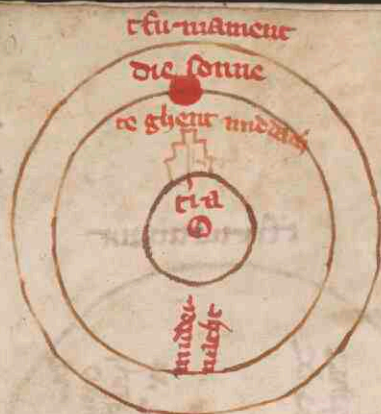 tfirmament
die sonne
te ghent middach
midder
nacht